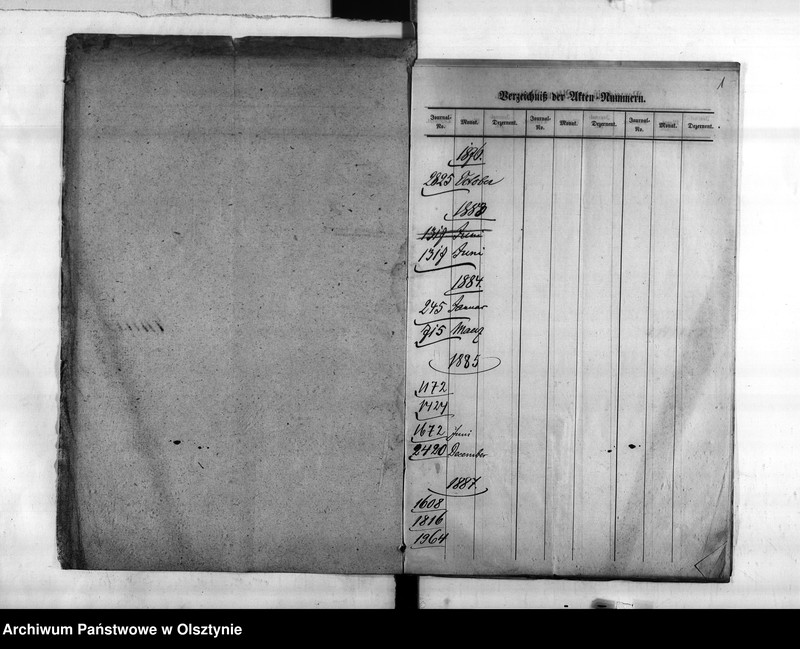 1
Verzeichniß der Akten-Nummern.
Journal-No. Monat. Dezernent. Journal-No. Monat. Dezernent. Journal-No. Monat. Dezernent.
1876.
2825 October
1883
1319 Juni
1319 Juni
1884.
245 Januar
715 Maerz
1885
1172
1424
1672 Juni
2420 December
1887.
1608
1816
1964
Archiwum Państwowe w Olsztynie